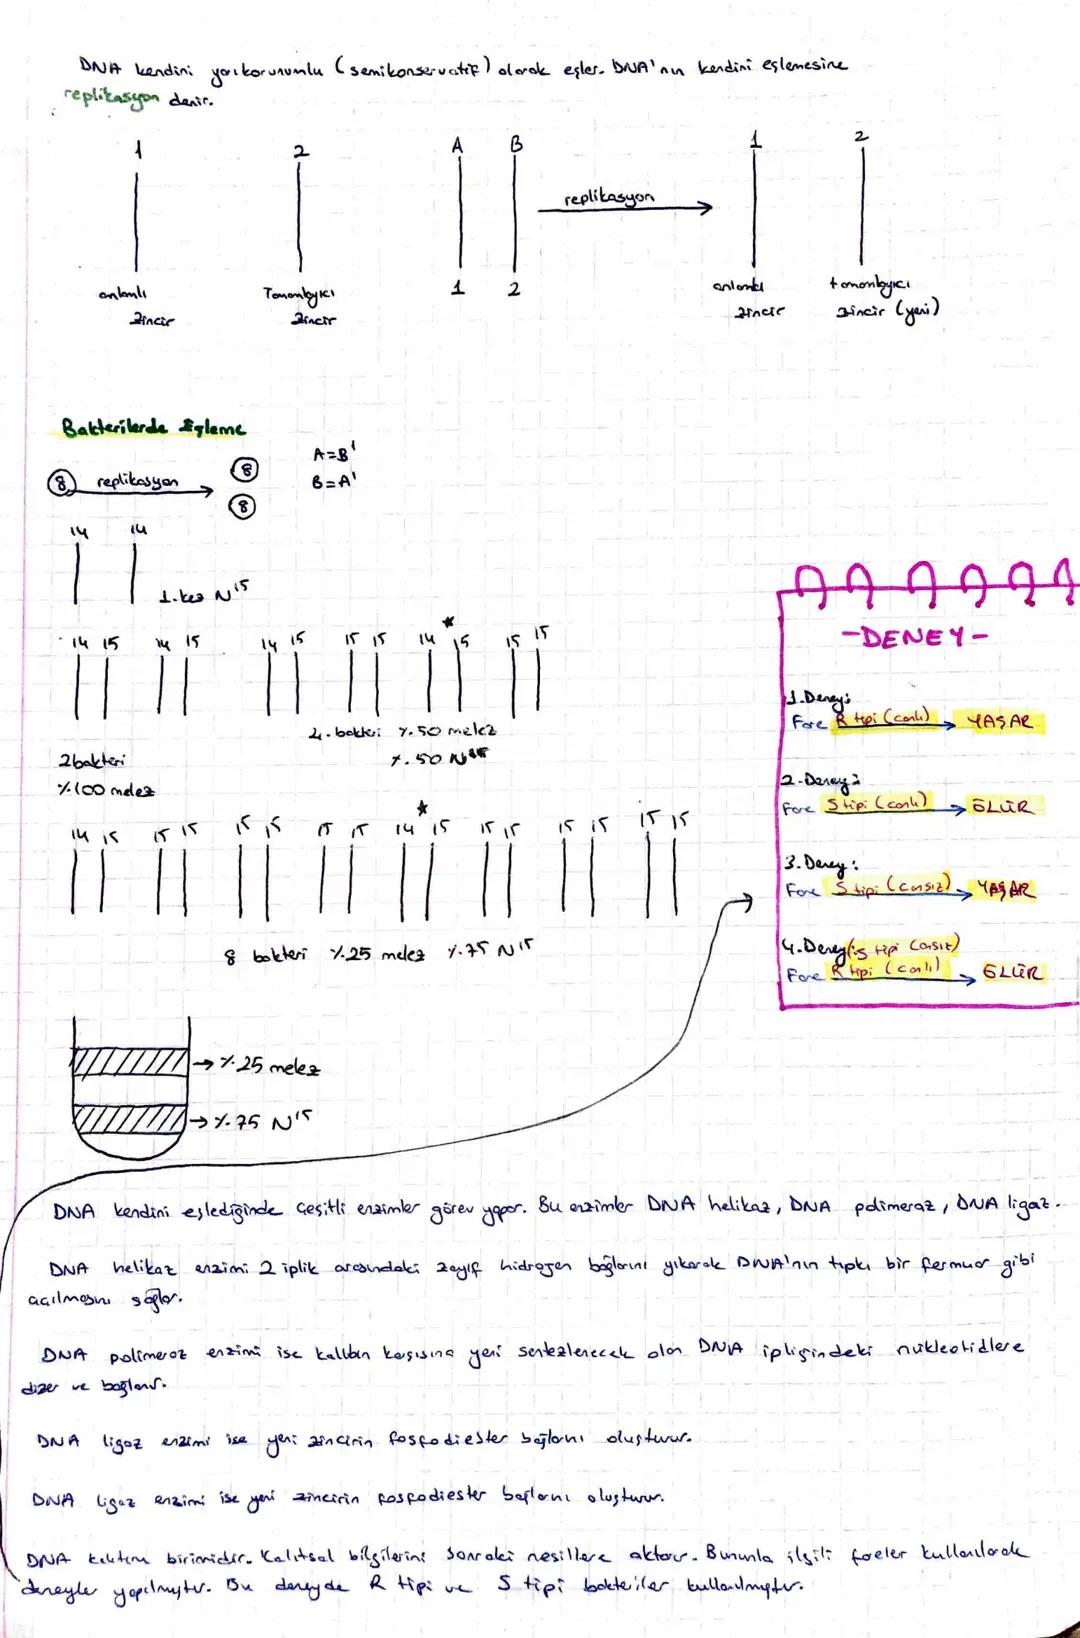 DNA kendini yarı korunumlu (semikonservatif) olarak eşler. DNA'nın kendini eşlemesine
replikasyon denir.
1 2 A B 1 2
replikasyon
1 2
anlamlı Tamamlayıcı anlamlı tamamlayıcı
zincir zincir zincir zincir (yeni)
Bakterilerde Eşleme
8 replikasyon 8
8
A=B'
B=A'
14 14
1.kez N15
14 15 14 15 14 15 15 15 14 15 15 15
2 bakteri
%100 melez
4. bakteri %50 melez
%.50 N15
14 15 15 15 15 15 15 15 14 15 15 15 15 15 15 15
8 bakteri %.25 melez %.75 N15
→ %.25 melez
→ %.75 N15
-DENEY-
1.Deney:
Fare R tipi (canlı) → YAŞAR
2.Deney:
Fare S tipi (canlı) → ÖLÜR
3.Deney:
Fare S tipi (cansız) → YAŞAR
4.Deney: S tipi (cansız)
Fare R tipi (canlı) → ÖLÜR
DNA kendini eşlediğinde çeşitli enzimler görev yapar. Bu enzimler DNA helikaz, DNA polimeraz, DNA ligaz.
DNA helikaz enzimi 2 iplik arasındaki zayıf hidrojen bağlarını yıkarak DNA'nın tıpkı bir fermuar gibi
açılmasını sağlar.
DNA polimeraz enzimi ise kalıbın karşısına yeni sentezlenecek olan DNA ipliğindeki nükleotidlere
dizer ve bağlanır.
DNA ligaz enzimi ise yeni zincirin fosfodiester bağlarını oluşturur.
DNA ligaz enzimi ise yeni zincirin fosfodiester bağlarını oluşturur.
DNA kalıtım birimidir. Kalıtsal bilgilerini sonraki nesillere aktarır. Bununla ilgili fareler kullanılarak
deneyler yapılmıştır. Bu deneyde R tipi ve S tipi bakteriler kullanılmıştır.